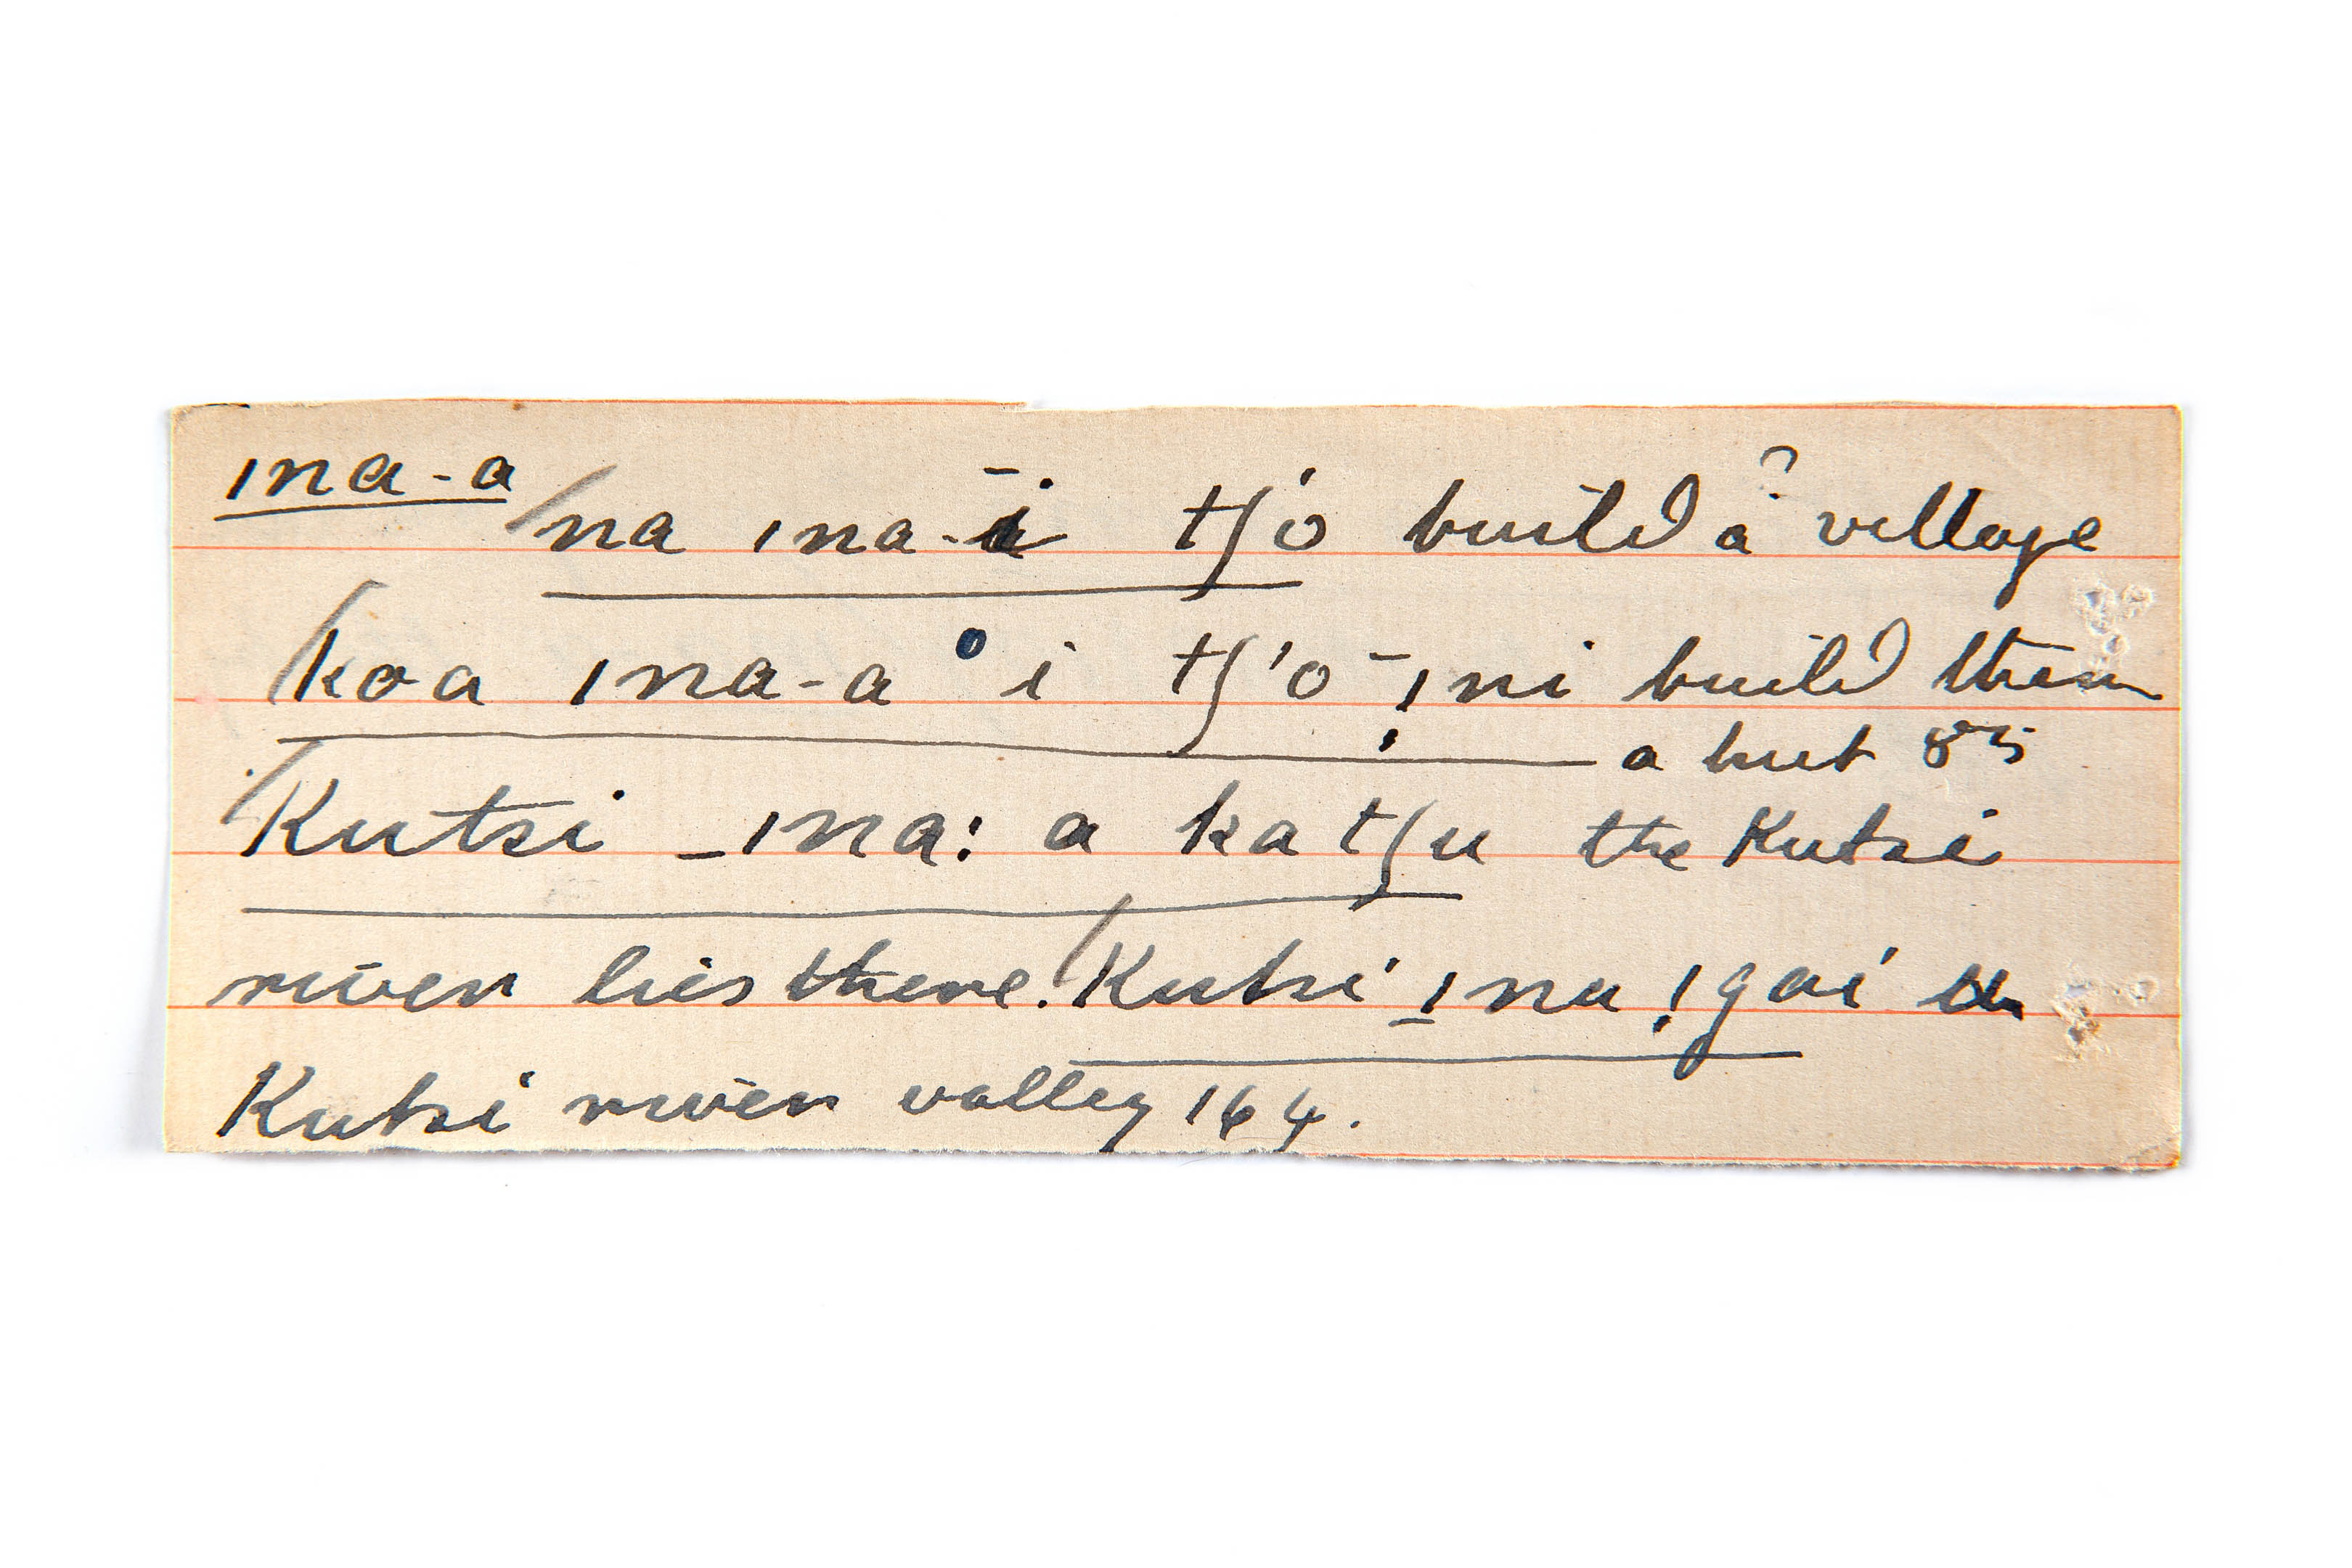 ına-a
/na ına-ī tʃ'o build a? village
/koa ına-a° i tʃ'o ¯ı̣ni build them
a hut 85
/Kutsi _ına: a katʃu the Kutsi
river lies there. /Kutsi _ına !gai the
Kutsi river valley 164.